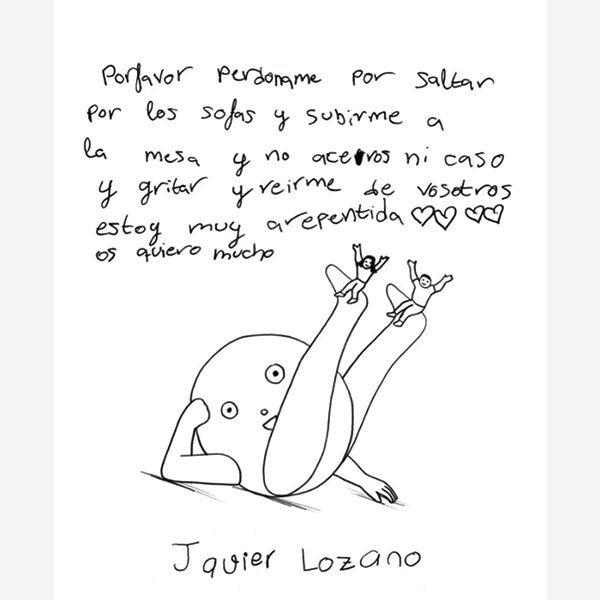 Porfavor perdoname por saltar
por los sofas y subirme a
la mesa y no acervos ni caso
y gritar y reirme de vosotros
estoy muy arepentida
os quiero mucho
Javier Lozano